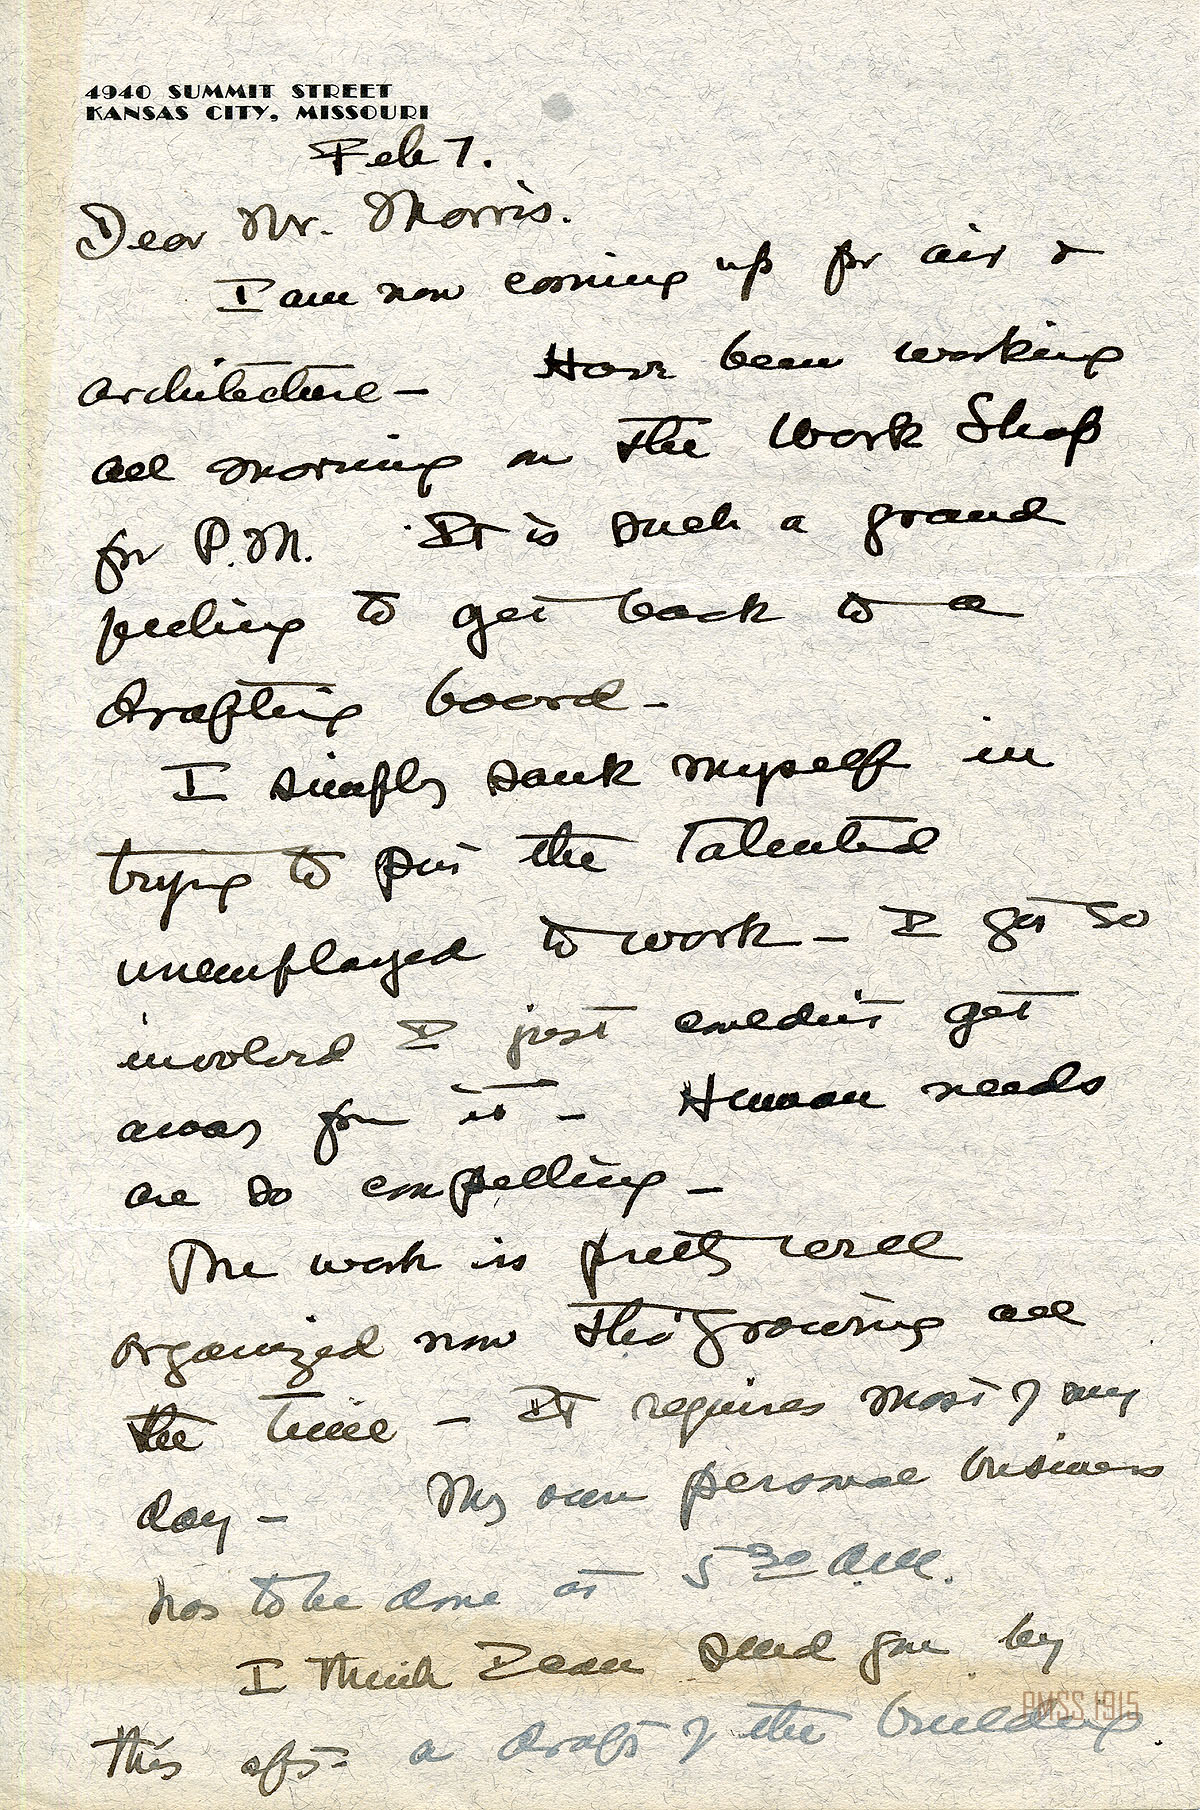 4940 SUMMIT STREET
KANSAS CITY, MISSOURI
Feb 7.
Dear Mr. Morris.
I am now coming up for air &
architecture – Have been working
all morning on the Work Shop
for P.M. It is such a grand
feeling to get back to a
drafting board –
I simply sank myself in
trying to put the talented
unemployed to work – I got so
involved I just couldn't get
away from it – Human needs
are so compelling –
The work is pretty well
organized now tho' growing all
the time – It requires most of my
day – My own personal business
has to be done at 5 30 A.M.
I think I can send you by
this aft= a draft of the building.
PMSS 1915